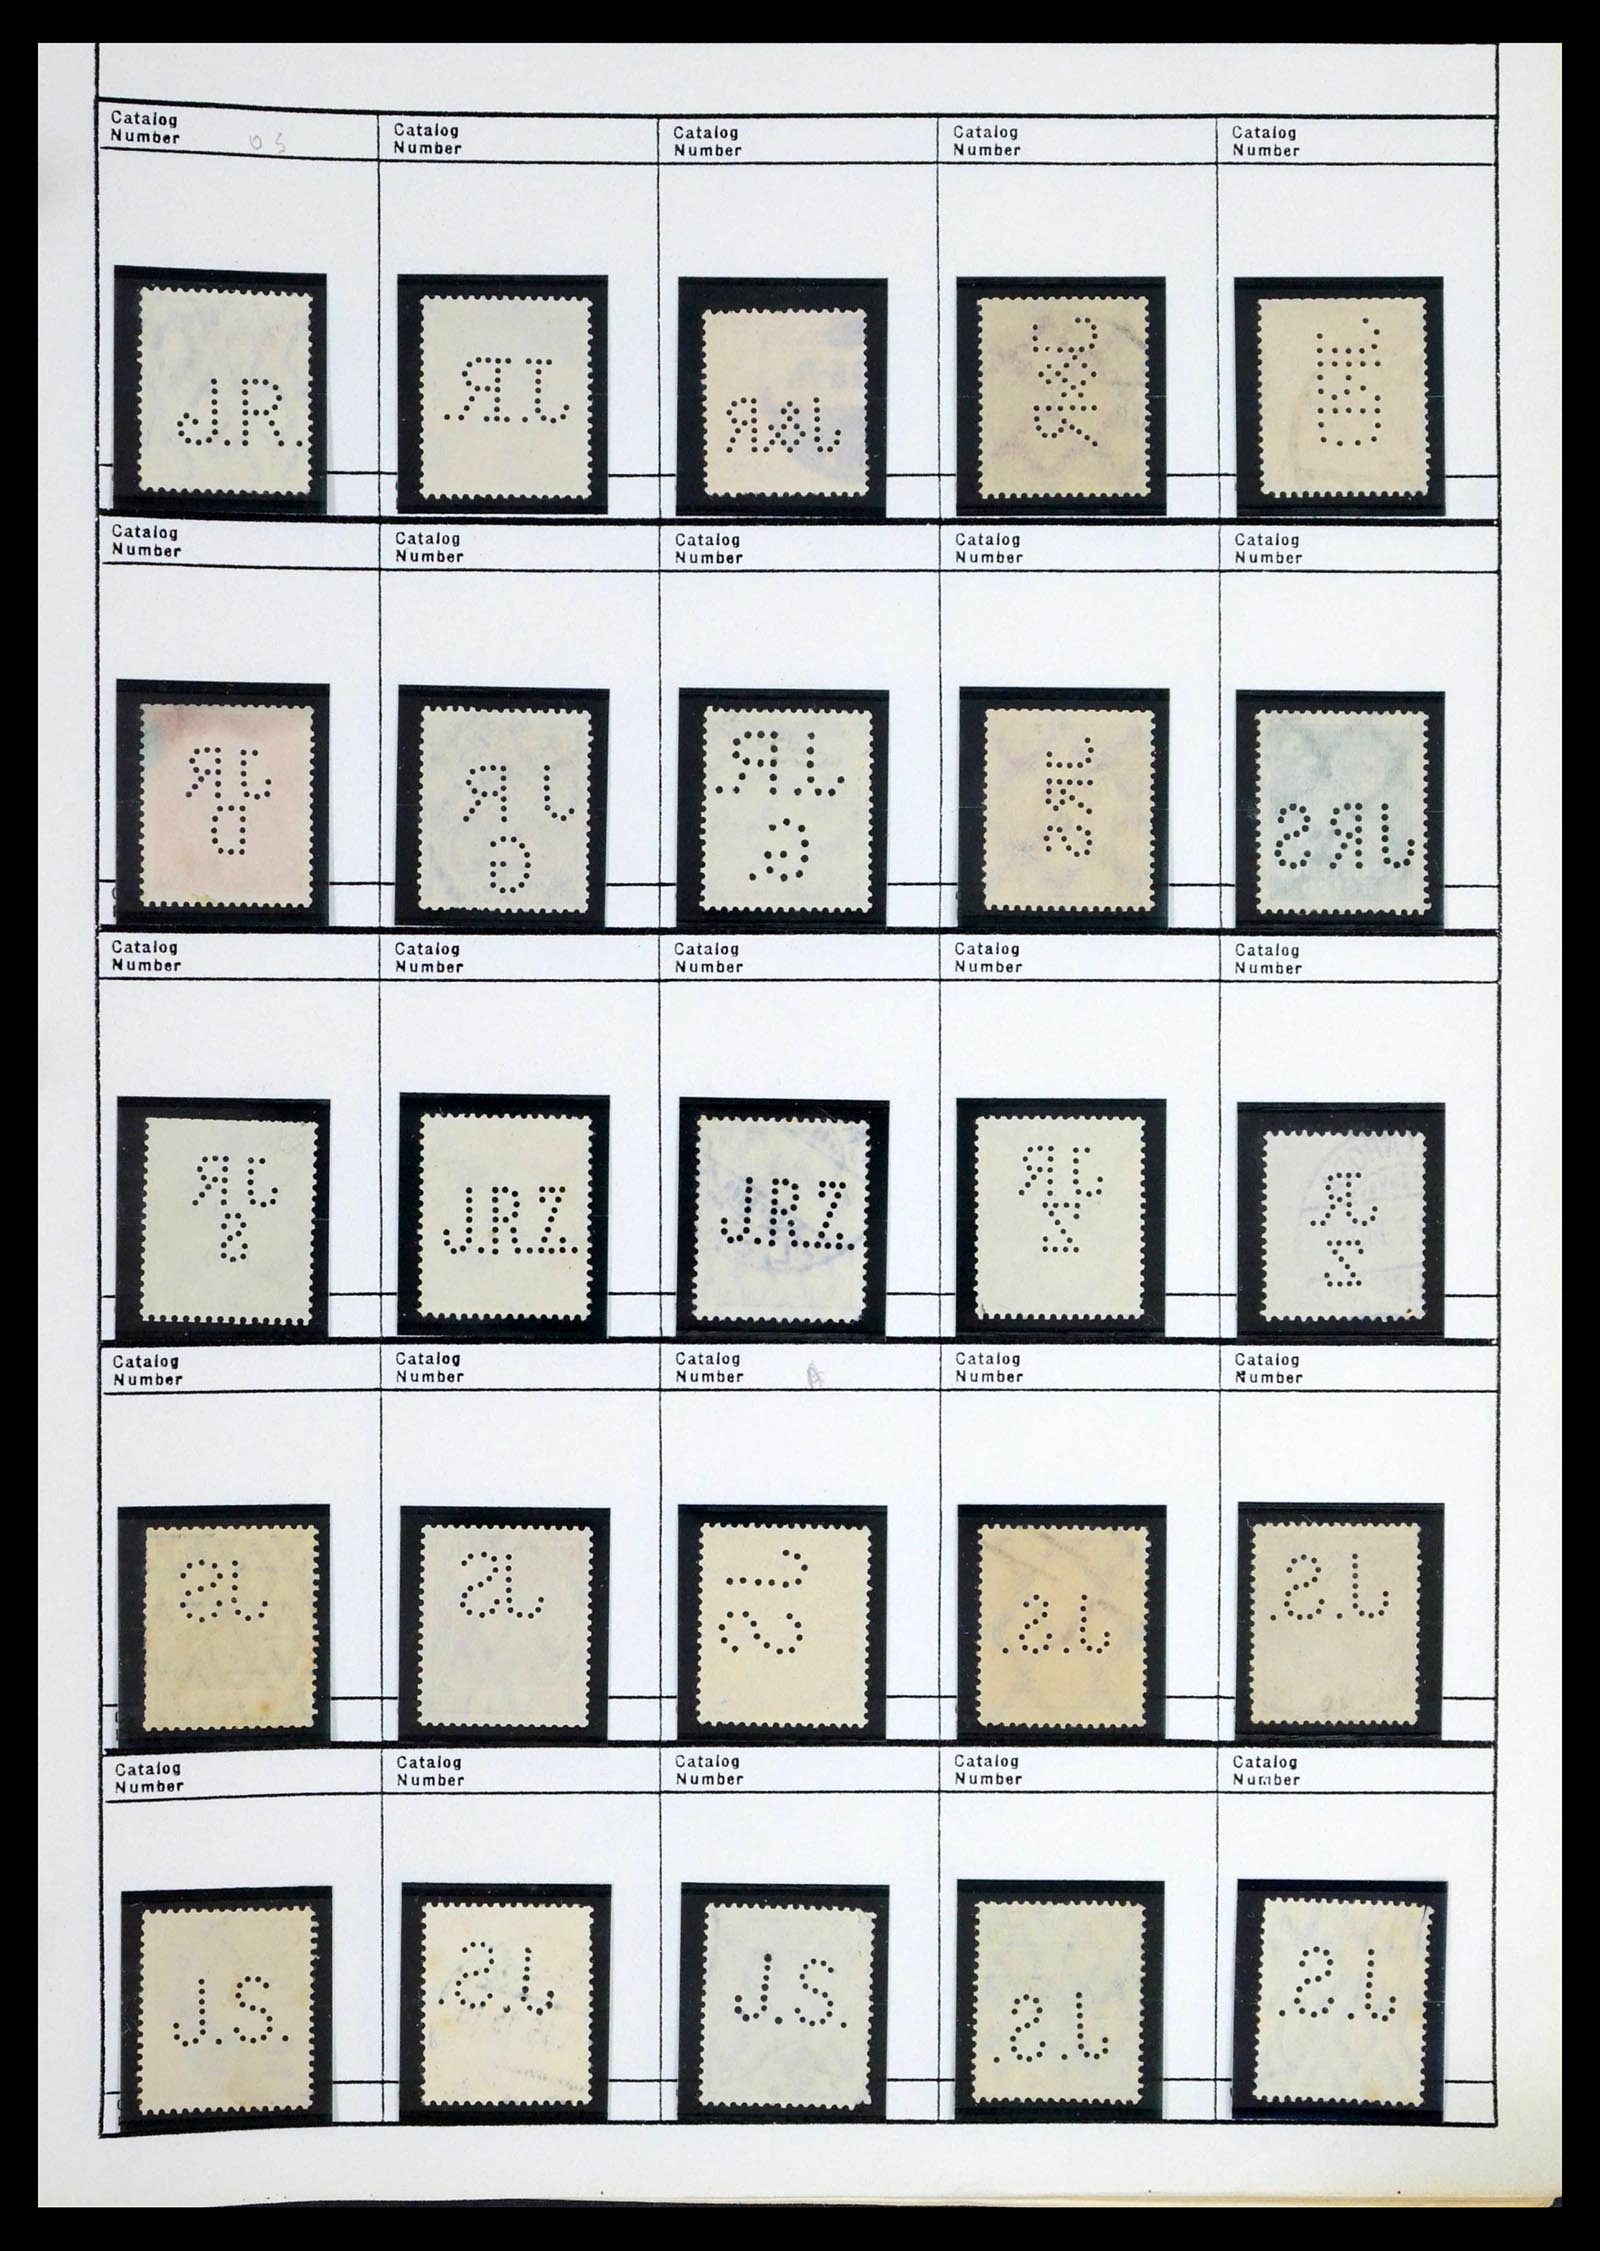 Catalog Number Catalog Number Catalog Number Catalog Number Catalog Number
J.R. J.R. J&R
Catalog Number Catalog Number Catalog Number Catalog Number Catalog Number
JR D JR G J.R. G. JRS JRS
Catalog Number Catalog Number Catalog Number Catalog Number Catalog Number
JR S J.R.Z. J.R.Z. JR Z JR Z
Catalog Number Catalog Number Catalog Number A Catalog Number Catalog Number
JS JS JS J.S. J.S.
Catalog Number Catalog Number Catalog Number Catalog Number Catalog Number
J.S. J.S. J.S. J.S. J.S.